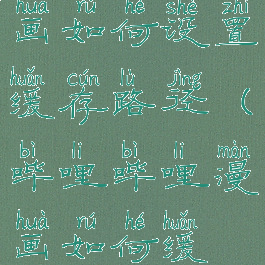 huà rú hé shè zhì
画如何设置
huǎn cún lù jìng
缓存路径（
bì lī bì lī màn
哔哩哔哩漫
huà rú hé huǎn
画如何缓